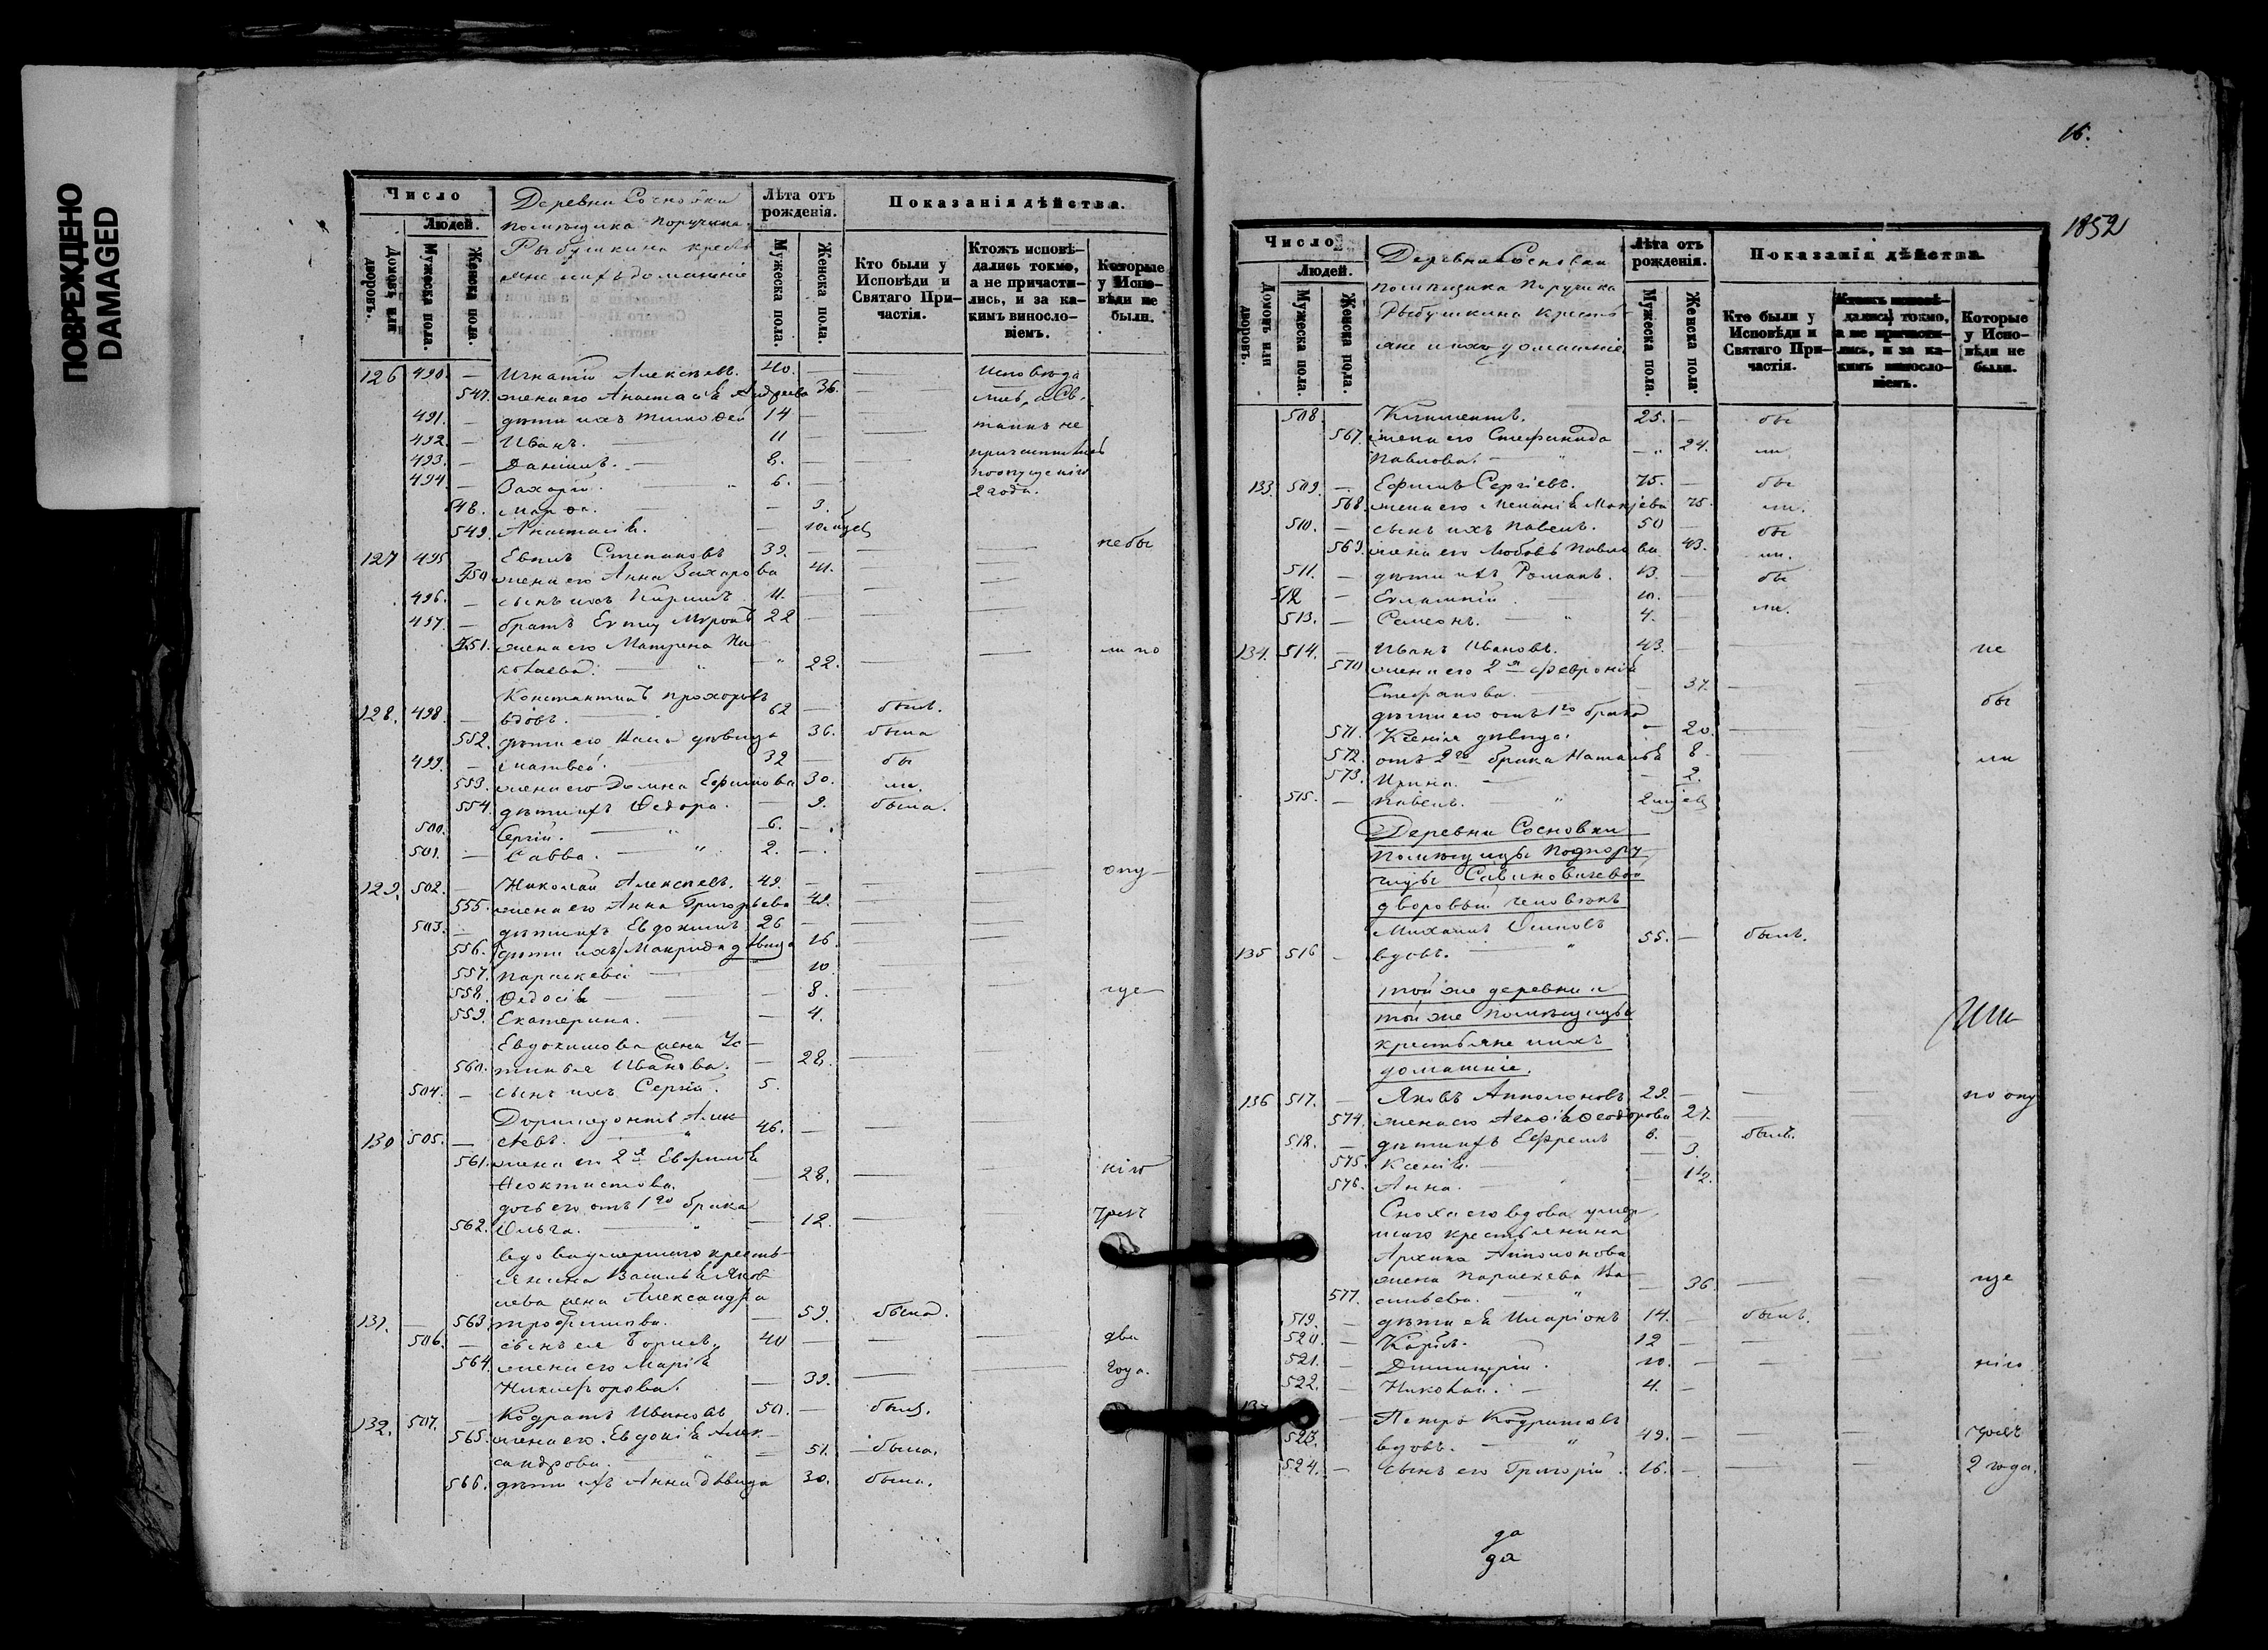 ПОВРЕЖДЕНО
DAMAGED
Число
Людей.
Домовъ или дворовъ.
Мужеска пола.
Женска пола.
Деревни Сосновки
помѣщика Поручика
Рыбушкина кресть
яне и ихъ домашніе
Лѣта отъ рожденія.
Мужеска пола.
Женска пола.
Показанія дѣйства.
Кто были у Исповѣди и Святаго При-частія.
Ктожъ исповѣ-дались токмо, а не причасти-лись, и за ка-кимъ винослo-віемъ.
Которые у Испо-вѣди не были.
126 490. — Игнатій Алексѣевъ. 40. — — исповѣда
547. жена его Анастасія Андреева 36. — лись, а Св.
491. — дѣти ихъ Тимоѳей 14 — — таинъ не
492. — Иванъ. — 11 — — причастились
493. — Даніилъ. — 8. — — по опущенію
494. — Захарій. — 6. — — 2 года.
548. Марѳа. — 3.
549. Анастасія. —
127 495 — Евпл Степановъ 39. — — — не бы
550 жена его Анна Захарова 41. — —
496. — сынъ ихъ Кирилъ 11. — —
497. — братъ Евплу Миронъ 22 — — —
551. жена его Матрена Ни ли по
колаева. — 22. — —
Константинъ Прохоровъ
128. 498. — вдовъ. — 62 — былъ.
552. дѣти его девица 36. была
499. — Матвей. — 32 — бы
553. жена его Домна Ефимова 30. ли.
554. дѣти ихъ Ѳедора. — 9. была.
500. Сергій. — 6. —
501. — Савва. — 2. —
129. 502. — Николай Алексѣевъ. 49. — — — опу
555. жена его Анна Григорьева 48. — —
503. — дѣти ихъ Евдокимъ 26 — — —
556. дѣти ихъ Макрида дѣвица 16. — —
557. Параскева — 10 —
558. Ѳедосія — — 8. — — ще
559. Екатерина. — — 4.
Евдокимова жена Ус
560. тинья Иванова. — 28. —
504. — сынъ ихъ Сергій. 5.
Доримедонтъ Алек
130 505. — сѣевъ. — 46. — —
561. жена его 2я Евфимія
Ѳеоктистова. — 28. — — нію
дочь его отъ 1го брака
562. Ольга. — — 12. — чрезъ
вдова умершаго кресть
янина Василья Яков
лева жена Александра
131. — 563 Трофимова. — 59. была.
506. — сынъ ея Борисъ. 40 — — — два
564. жена его Марія
Никифорова. — 39. — — года.
132. 507. — Кодратъ Ивановъ 50. — былъ.
565. жена его Евдокія Алек
сандрова. — 51. была.
566. дѣти ихъ Анна дѣвица 30. была.
16.
1852
Число
Людей.
Домовъ или дворовъ.
Мужеска пола.
Женска пола.
Деревни Сосновки
помѣщика Поручика
Рыбушкина кресть
яне и ихъ домашніе
Лѣта отъ рожденія.
Мужеска пола.
Женска пола.
Показанія дѣйства.
Кто были у Исповѣди и Святаго При-частія.
Ктожъ исповѣ-дались токмо, а не причасти-лись, и за ка-кимъ винослo-віемъ.
Которые у Испо-вѣди не были.
508. — Климентъ. 25. — бы
567. жена его Стефанида
Павлова. — 24. ли.
133. 509. — Ефимъ Сергіевъ. 75. — бы
568. жена его Меланія 75. ли.
510. — сынъ ихъ Павелъ. 50 — бы
569. жена его Любовь Павлова 43. ли.
511. — дѣти ихъ Романъ. 13. — бы
512 — Евлампій. — 10. — ли.
513. — Симеонъ. — 4.
134. 514. — Иванъ Ивановъ. 43. — — не
570 жена его 2я Февронія
Стефанова. — 37. — бы
дѣти его отъ 1го брака
571. Ксенія дѣвица. — 20. —
572. отъ 2го брака Наталія 8. — ли
573. Ирина. — — 2.
515. — Павелъ. —
Деревни Сосновки
Помѣщицы Подпору
чицы Савиновичевой
дворовый человѣкъ
Михаилъ Осиповъ
135 516 — вдовъ. — 55. — былъ.
той же деревни и
той же помѣщицы
крестьяне и ихъ
домашніе.
136 517. — Яковъ Апполоновъ 29. — — — по опу
574. жена его Агафія Ѳеодорова 27.
518. — дѣти ихъ Ефремъ 6. — былъ.
575. Ксенія. — — 3.
576. Анна. — — 1½.
Сноха его вдова умер
шаго крестьянина
Архипа Апполонова
жена Параскева Ва
577. сильева. — — 36. — — ще
519. — дѣти ея Иларіонъ 14. — былъ.
520. — Карпъ. — 12 —
521. — Димитрій. 10. — — — нію
522. — Николай. — 4. —
137 — Петръ Кодратовъ
523. вдовъ. — 49. — — — чрезъ
524. — сынъ его Григорій. 16. — — — 2 года.
да
да